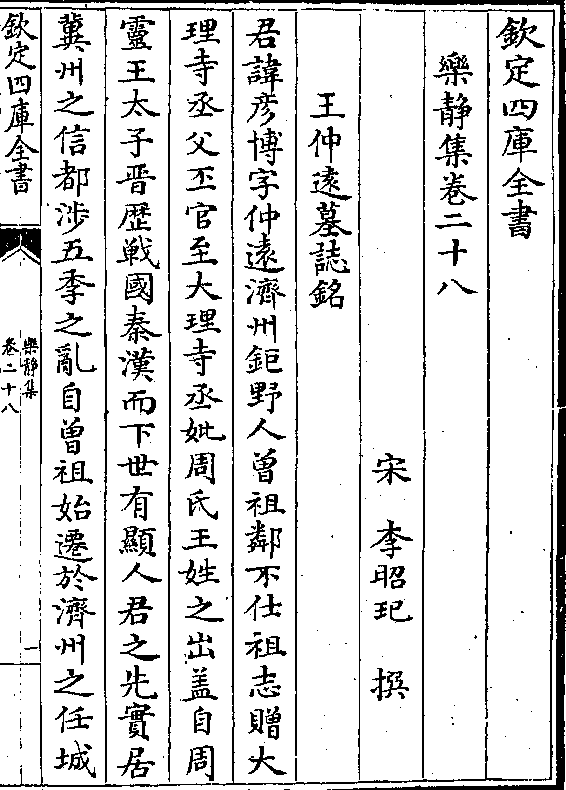 欽定四庫全書
樂静集巻二十八
宋　李昭玘　撰
王仲逺墓誌銘
君諱彦博字仲逺濟州鉅野人曽祖鄰不仕祖志贈大
理寺丞父丕官至大理寺丞妣周氏王姓之出盖自周
靈王太子晋歴戰國秦漢而下世有顯人君之先實居
冀州之信都涉五季之亂自曽祖始遷於濟州之任城
欽定四庫全書
樂静集
卷二十八
一